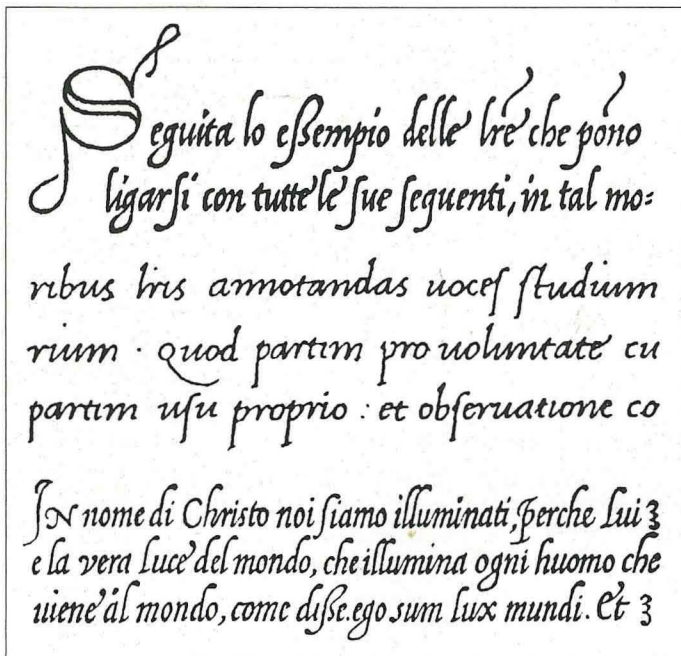 Seguita lo eſſempio delle lr̃e che põno
ligarſi con tutte le ſue ſequenti, in tal mo=
ribus lris annotandas uoceſ ſtudium
rium · Quod partim pro uoluntate cu
partim uſu proprio : et obſeruatione co
IN nome di Christo noi ſiamo illuminati, ꝑerche Lui ʒ
e la vera Luce del mondo, che illumina ogni huomo che
uiene àl mondo, come diſſe. ego sum Lux mundi. Et ʒ